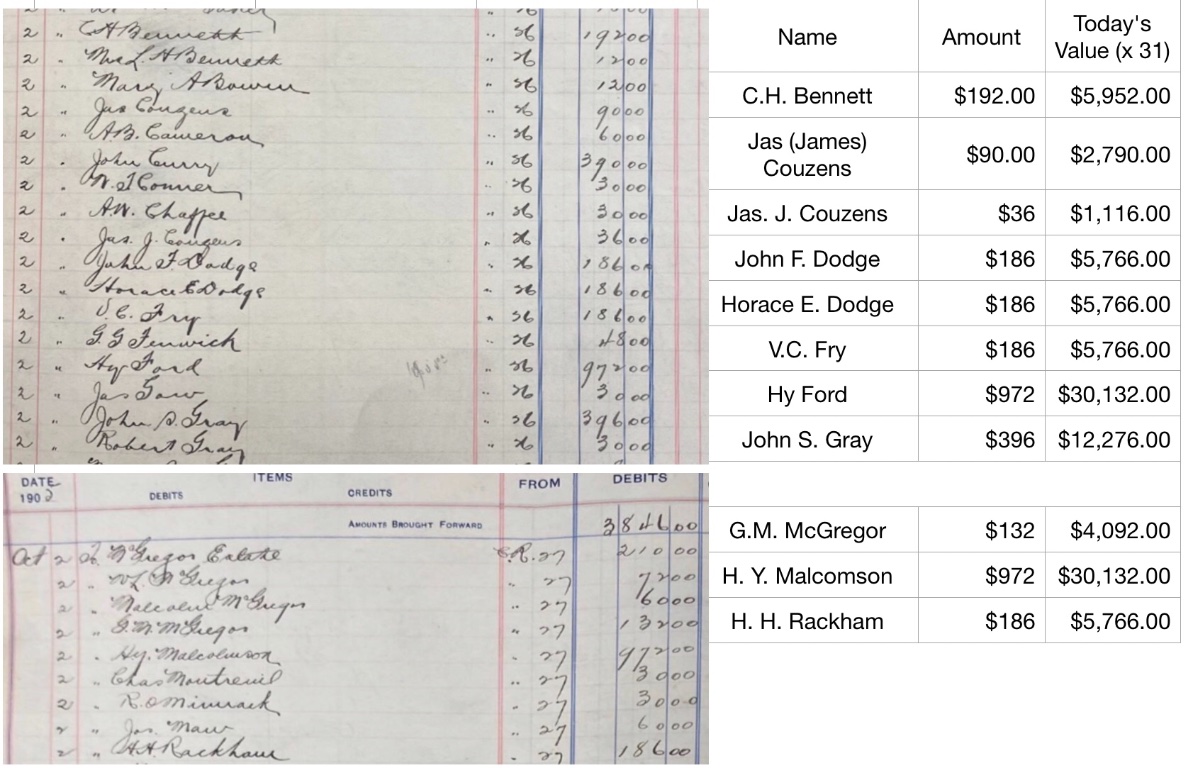 2 " C H Bennett " 26 192 00
2 " Mrs L. A Bennett " 26 12 00
2 " Mary A Bowen " 26 12 00
2 " Jas Couzens " 26 90 00
2 " A.B. Cameron " 26 60 00
2 " John Curry " 26 390 00
2 " W. T Conner " 26 30 00
2 " A.W. Chaffee " 26 30 00
2 " Jas. J. Couzens " 26 36 00
2 " John F. Dodge " 26 186 00
2 " Horace E Dodge " 26 186 00
2 " V. C. Fry " 26 186 00
2 " G. G Fenwick " 26 48 00
2 " Hy Ford " 26 972 00
2 " Jas Gow " 26 30 00
2 " John S. Gray " 26 396 00
2 " Robert Gray " 26 30 00
DATE ITEMS FROM DEBITS
190 DEBITS CREDITS
AMOUNTS BROUGHT FORWARD 3846 00
Oct 2 McGregor Estate C.R. 27 210 00
2 " McGregor " 27 72 00
2 " Malcolm McGregor " 27 60 00
2 " G. M. McGregor " 27 132 00
2 " Hy. Malcolmson " 27 972 00
2 " Chas Montreuil " 27 30 00
2 " R. O 27 30 00
2 " Jos. Maw " 27 60 00
2 " H H Rackham " 27 186 00
Name Amount Today's
Value (x 31)
C.H. Bennett $192.00 $5,952.00
Jas (James)
Couzens $90.00 $2,790.00
Jas. J. Couzens $36 $1,116.00
John F. Dodge $186 $5,766.00
Horace E. Dodge $186 $5,766.00
V.C. Fry $186 $5,766.00
Hy Ford $972 $30,132.00
John S. Gray $396 $12,276.00
G.M. McGregor $132 $4,092.00
H. Y. Malcomson $972 $30,132.00
H. H. Rackham $186 $5,766.00